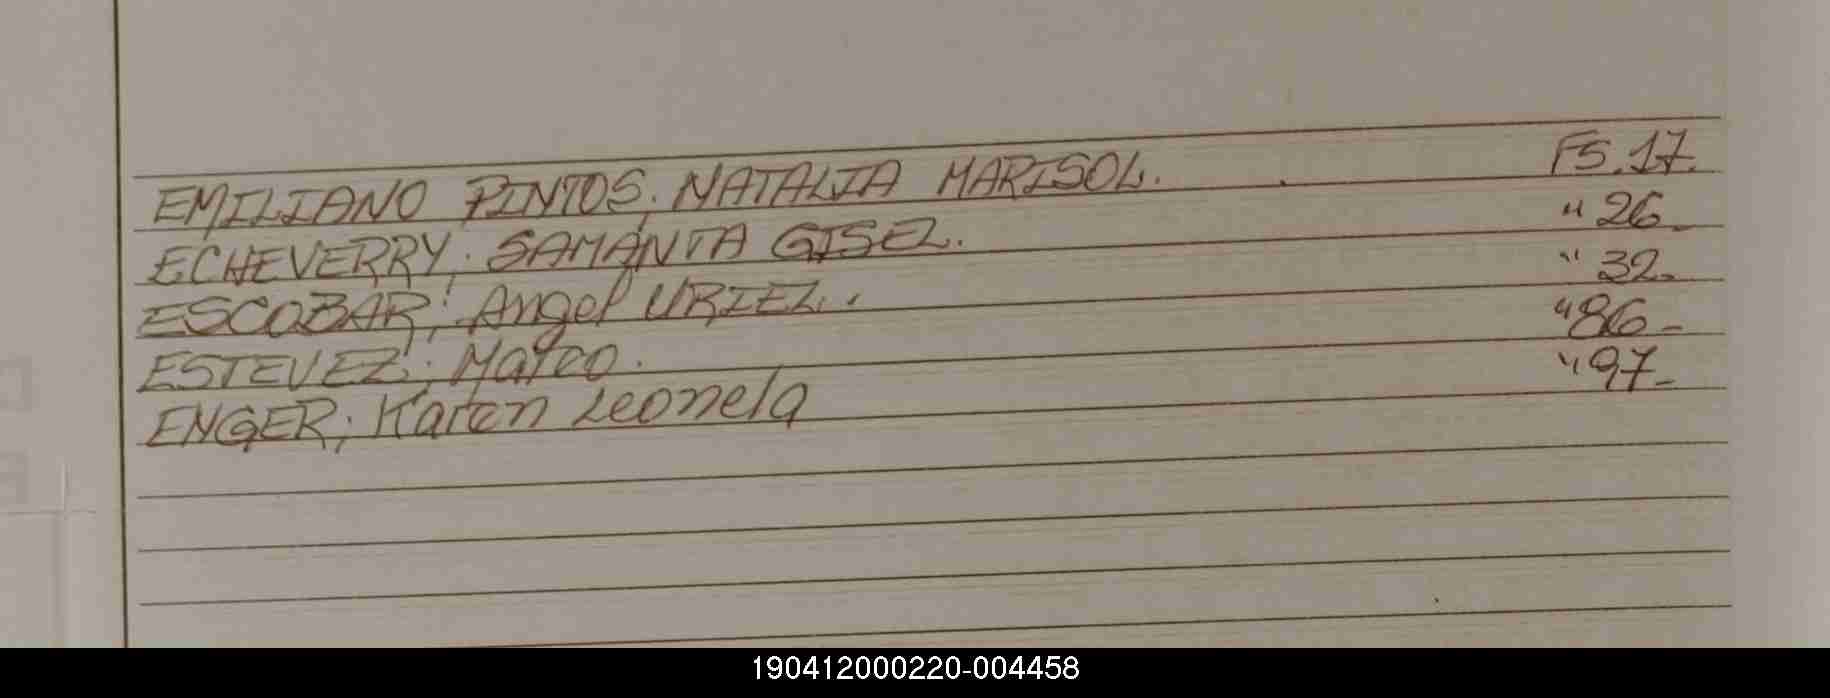 EMILIANO PINTOS; NATALIA MARISOL. FS. 17.
ECHEVERRY; SAMANTA GISEL. " 26_
ESCOBAR; Angel URIEL. " 32_
ESTEVEZ; Mateo. " 86_
ENGER; Karen Leonela " 97_
190412000220-004458